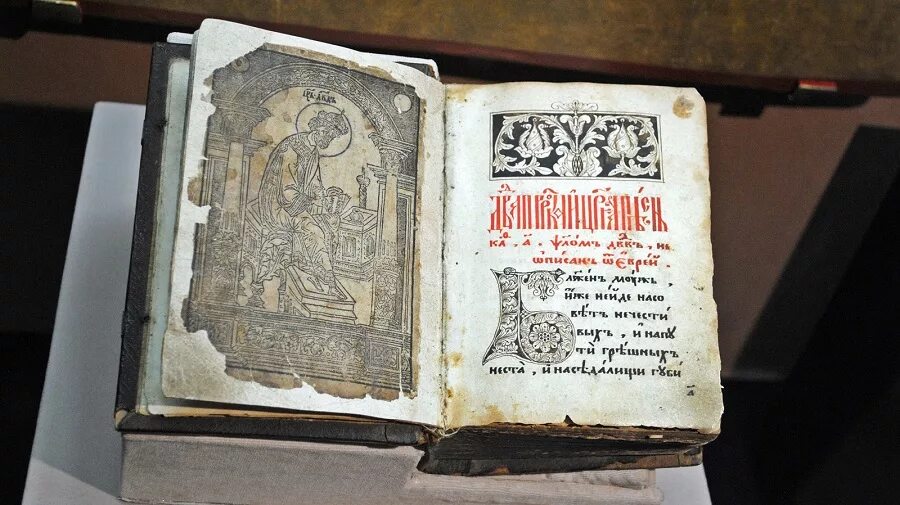 цр҃ь дв҃дъ
Дв҃да прⷪ҇ро и цр҃ѧ пѣсни
каѳ . а҃ . ѱло́мъ дв҃дъ , не
ѡписанъ ѿ еврей .
Блже́нъ моужь ,
и́же не и́де насо
вѣтъ нечести
выхъ , и напу
ти́ грѣшныхъ
неста , и наседа́лищи губи́
а҃